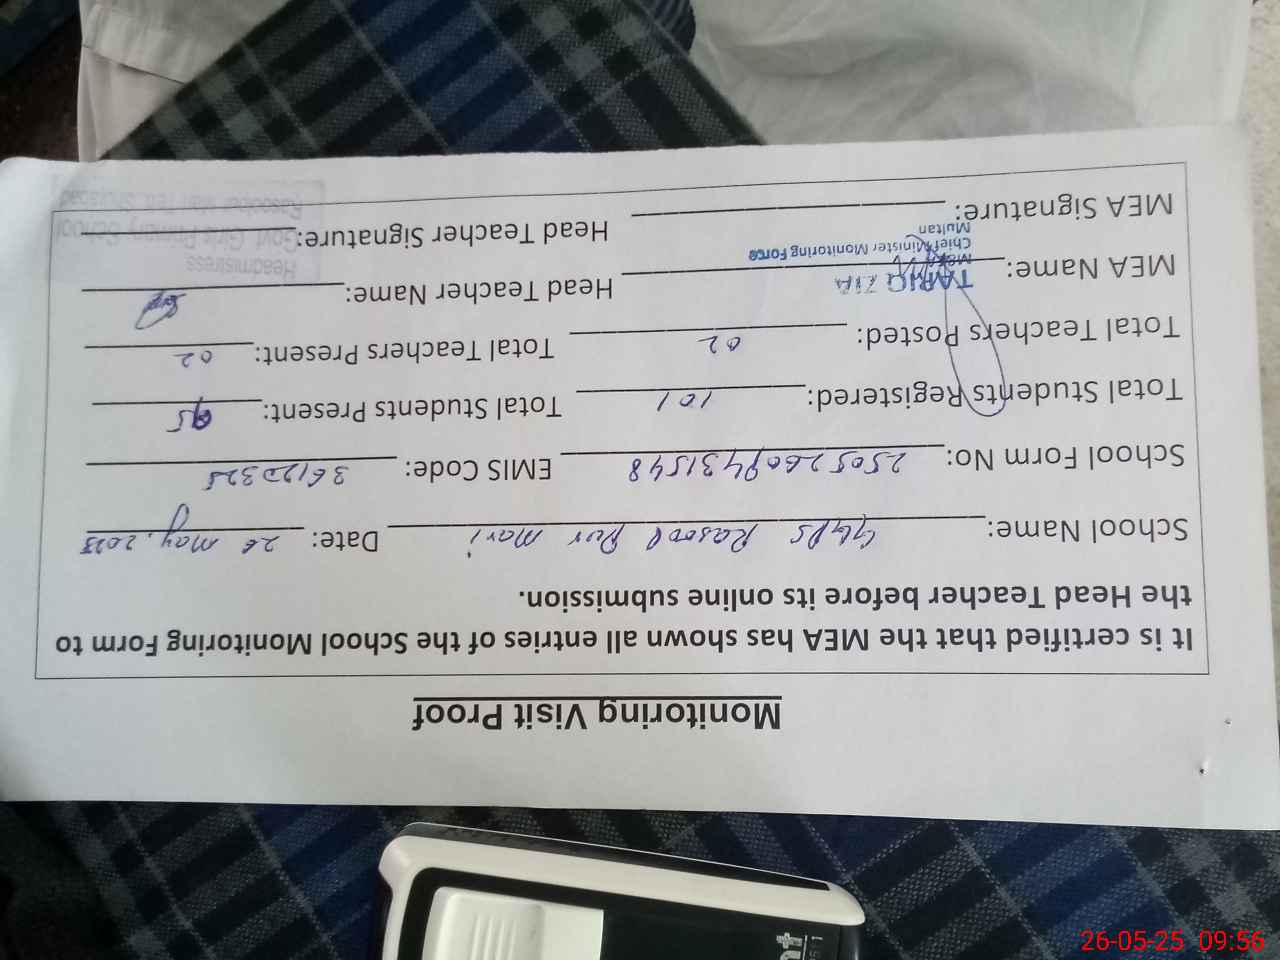 Monitoring Visit Proof
It is certified that the MEA has shown all entries of the School Monitoring Form to
the Head Teacher before its online submission.
School Name: GGPS Rasool Pur Mari Date: 26 May, 2025
School Form No: 25052608431548 EMIS Code: 36120325
Total Students Registered: 101 Total Students Present: 95
Total Teachers Posted: 02 Total Teachers Present: 02
MEA Name: TARIQ ZIA Head Teacher Name:
Chief Minister Monitoring Force
Multan
MEA Signature: Head Teacher Signature:
Headmistress
Govt. Girls Primary School
Rasoolpur Mari Teh. Shujabad
26-05-25 09:56